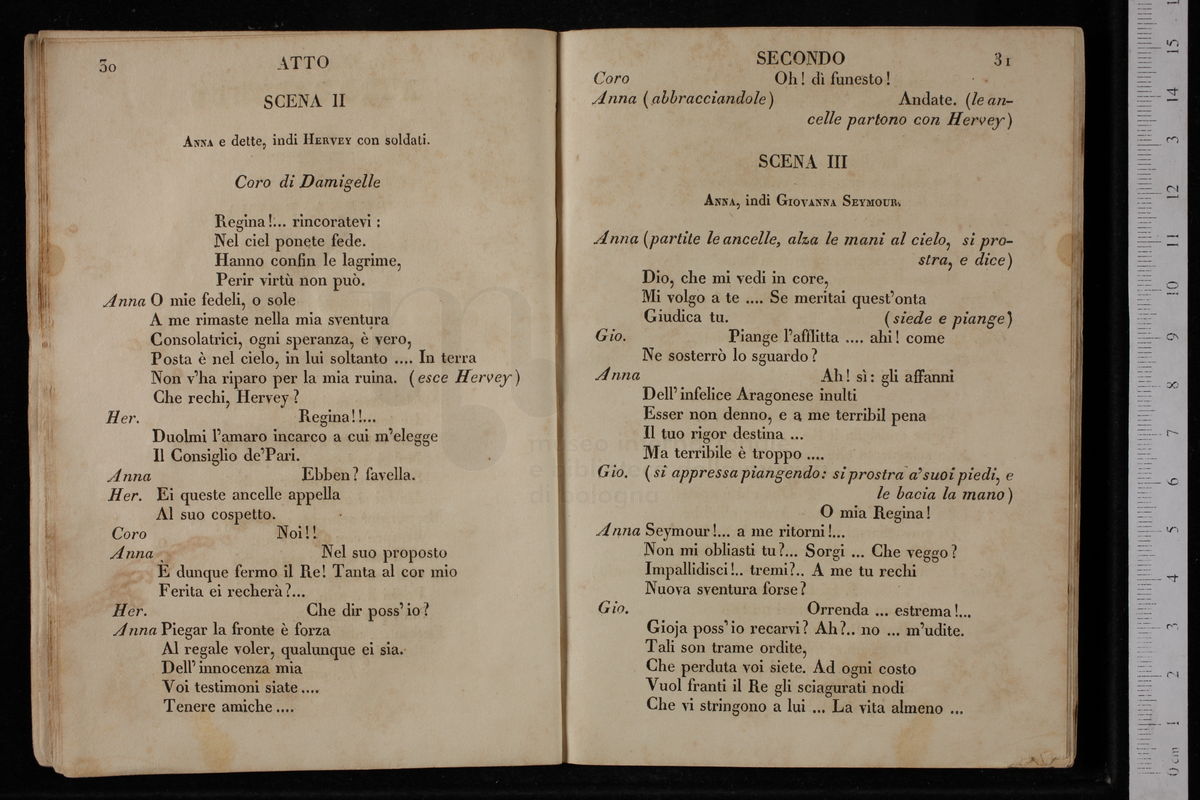 30
ATTO
SCENA II
Anna e dette, indi Hervey con soldati.
Coro di Damigelle
Regina!... rincoratevi:
Nel ciel ponete fede.
Hanno confin le lagrime,
Perir virtù non può.
Anna O mie fedeli, o sole
A me rimaste nella mia sventura
Consolatrici, ogni speranza, è vero,
Posta è nel cielo, in lui soltanto .... In terra
Non v'ha riparo per la mia ruina. (esce Hervey)
Che rechi, Hervey?
Her. Regina!!...
Duolmi l'amaro incarco a cui m'elegge
Il Consiglio de'Pari.
Anna Ebben? favella.
Her. Ei queste ancelle appella
Al suo cospetto.
Coro Noi!!
Anna Nel suo proposto
È dunque fermo il Re! Tanta al cor mio
Ferita ei recherà?...
Her. Che dir poss'io?
Anna Piegar la fronte è forza
Al regale voler, qualunque ei sia.
Dell'innocenza mia
Voi testimoni siate....
Tenere amiche....
SECONDO
31
Coro Oh! dì funesto!
Anna (abbracciandole) Andate. (le an-
celle partono con Hervey)
SCENA III
Anna, indi Giovanna Seymour.
Anna (partite le ancelle, alza le mani al cielo, si pro-
stra, e dice)
Dio, che mi vedi in core,
Mi volgo a te .... Se meritai quest'onta
Giudica tu. (siede e piange)
Gio. Piange l'afflitta .... ahi! come
Ne sosterrò lo sguardo?
Anna Ah! sì: gli affanni
Dell'infelice Aragonese inulti
Esser non denno, e a me terribil pena
Il tuo rigor destina ...
Ma terribile è troppo ....
Gio. (si appressa piangendo: si prostra a'suoi piedi, e
le bacia la mano)
O mia Regina!
Anna Seymour!... a me ritorni!...
Non mi obliasti tu?... Sorgi ... Che veggo?
Impallidisci!.. tremi?.. A me tu rechi
Nuova sventura forse?
Gio. Orrenda ... estrema!...
Gioja poss'io recarvi? Ah?.. no ... m'udite.
Tali son trame ordite,
Che perduta voi siete. Ad ogni costo
Vuol franti il Re gli sciagurati nodi
Che vi stringono a lui ... La vita almeno ...
0 cm 1 2 3 4 5 6 7 8 9 10 11 12 13 14 15